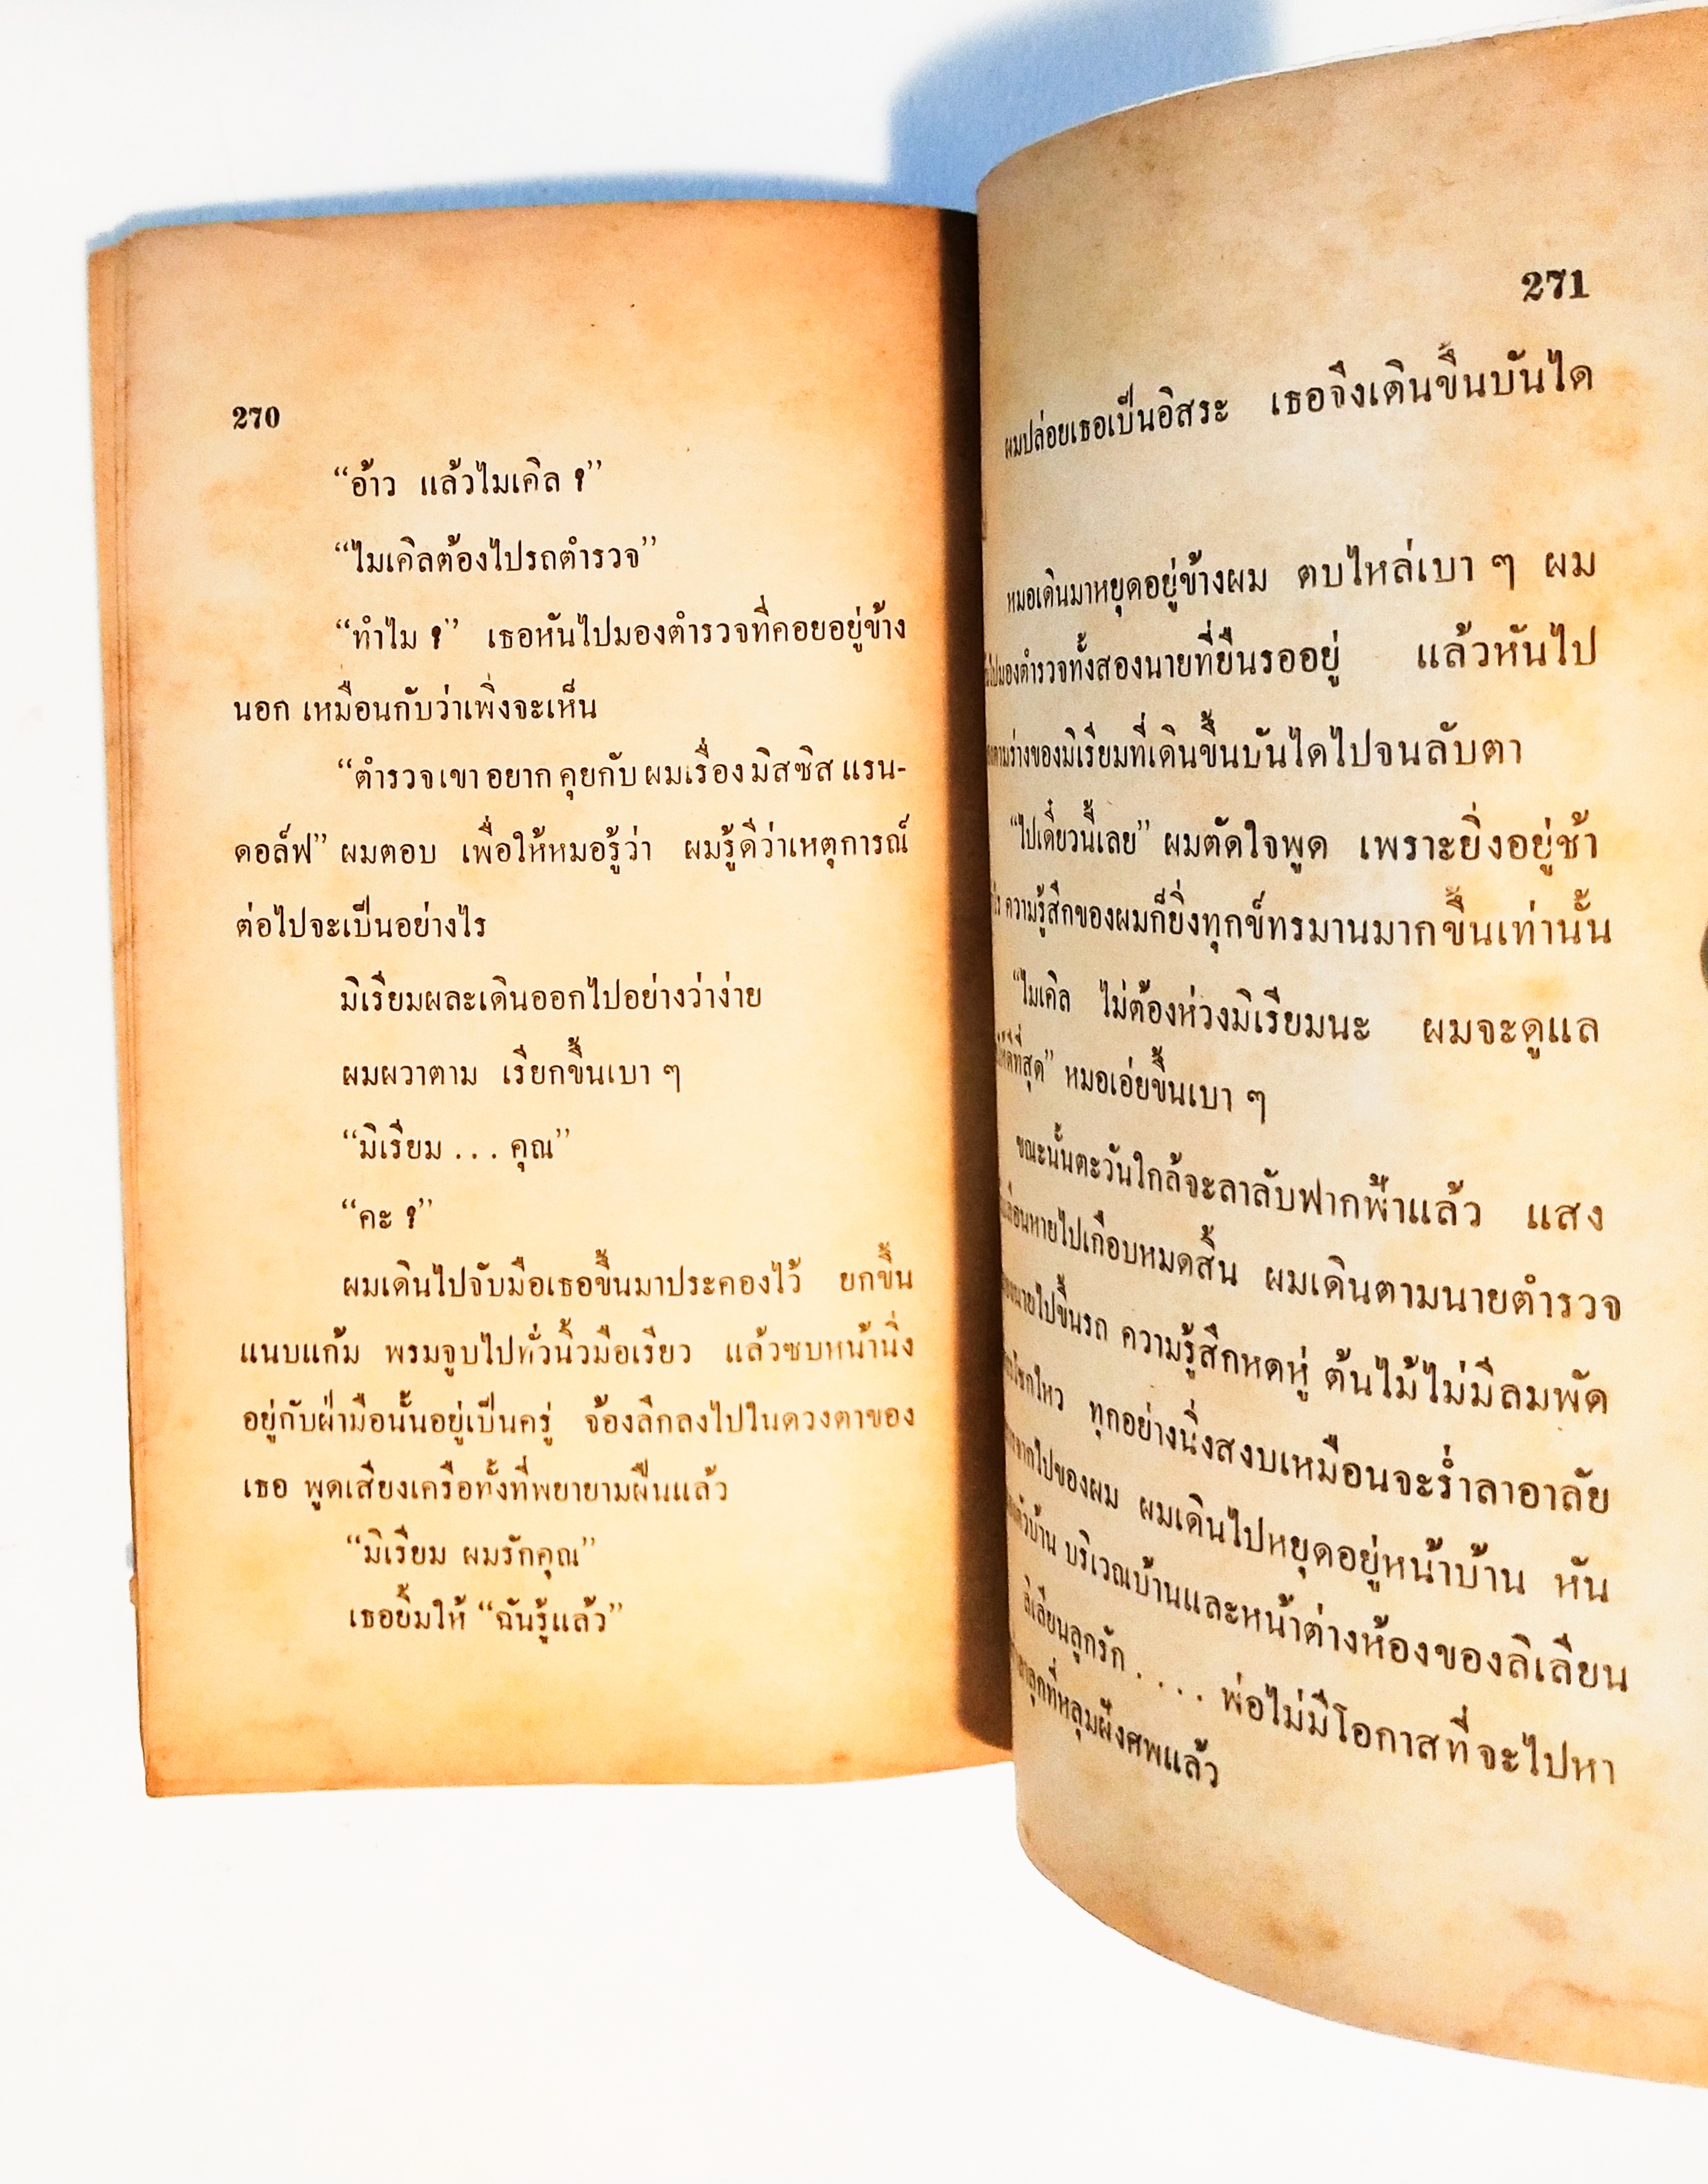 270
“อ้าว แล้วไมเคิล ?”
“ไมเคิลต้องไปรถตำรวจ”
“ทำไม ?” เธอหันไปมองตำรวจที่คอยอยู่ข้าง
นอก เหมือนกับว่าเพิ่งจะเห็น
“ตำรวจเขาอยากคุยกับผมเรื่องมิสซิสแรน-
ดอล์ฟ” ผมตอบ เพื่อให้หมอรู้ว่า ผมรู้ดีว่าเหตุการณ์
ต่อไปจะเป็นอย่างไร
มิเรียมผละเดินออกไปอย่างว่าง่าย
ผมผวาตาม เรียกขึ้นเบา ๆ
“มิเรียม . . . คุณ”
“คะ ?”
ผมเดินไปจับมือเธอขึ้นมาประคองไว้ ยกขึ้น
แนบแก้ม พรมจูบไปทั่วนิ้วมือเรียว แล้วซบหน้านิ่ง
อยู่กับฝ่ามือนั้นอยู่เป็นครู่ จ้องลึกลงไปในดวงตาของ
เธอ พูดเสียงเครือทั้งที่พยายามฝืนแล้ว
“มิเรียม ผมรักคุณ”
เธอยิ้มให้ “ฉันรู้แล้ว”
271
ผมปล่อยเธอเป็นอิสระ เธอจึงเดินขึ้นบันได
หมอเดินมาหยุดอยู่ข้างผม ตบไหล่เบา ๆ ผม
ไปมองตำรวจทั้งสองนายที่ยืนรออยู่ แล้วหันไป
ร่างของมิเรียมที่เดินขึ้นบันไดไปจนลับตา
“ไปเดี๋ยวนี้เลย” ผมตัดใจพูด เพราะยิ่งอยู่ช้า
ความรู้สึกของผมก็ยิ่งทุกข์ทรมานมากขึ้นเท่านั้น
“ไมเคิล ไม่ต้องห่วงมิเรียมนะ ผมจะดูแล
ดีที่สุด” หมอเอ่ยขึ้นเบา ๆ
ขณะนั้นตะวันใกล้จะลาลับฟากฟ้าแล้ว แสง
หายไปเกือบหมดสิ้น ผมเดินตามนายตำรวจ
นายไปขึ้นรถ ความรู้สึกหดหู่ ต้นไม้ไม่มีลมพัด
ทุกอย่างนิ่งสงบเหมือนจะร่ำลาอาลัย
จากไปของผม ผมเดินไปหยุดอยู่หน้าบ้าน หัน
บริเวณบ้านและหน้าต่างห้องของลิเลียน
ลิเลียนลูกรัก . . . . พ่อไม่มีโอกาสที่จะไปหา
ลูกที่หลุมฝังศพแล้ว